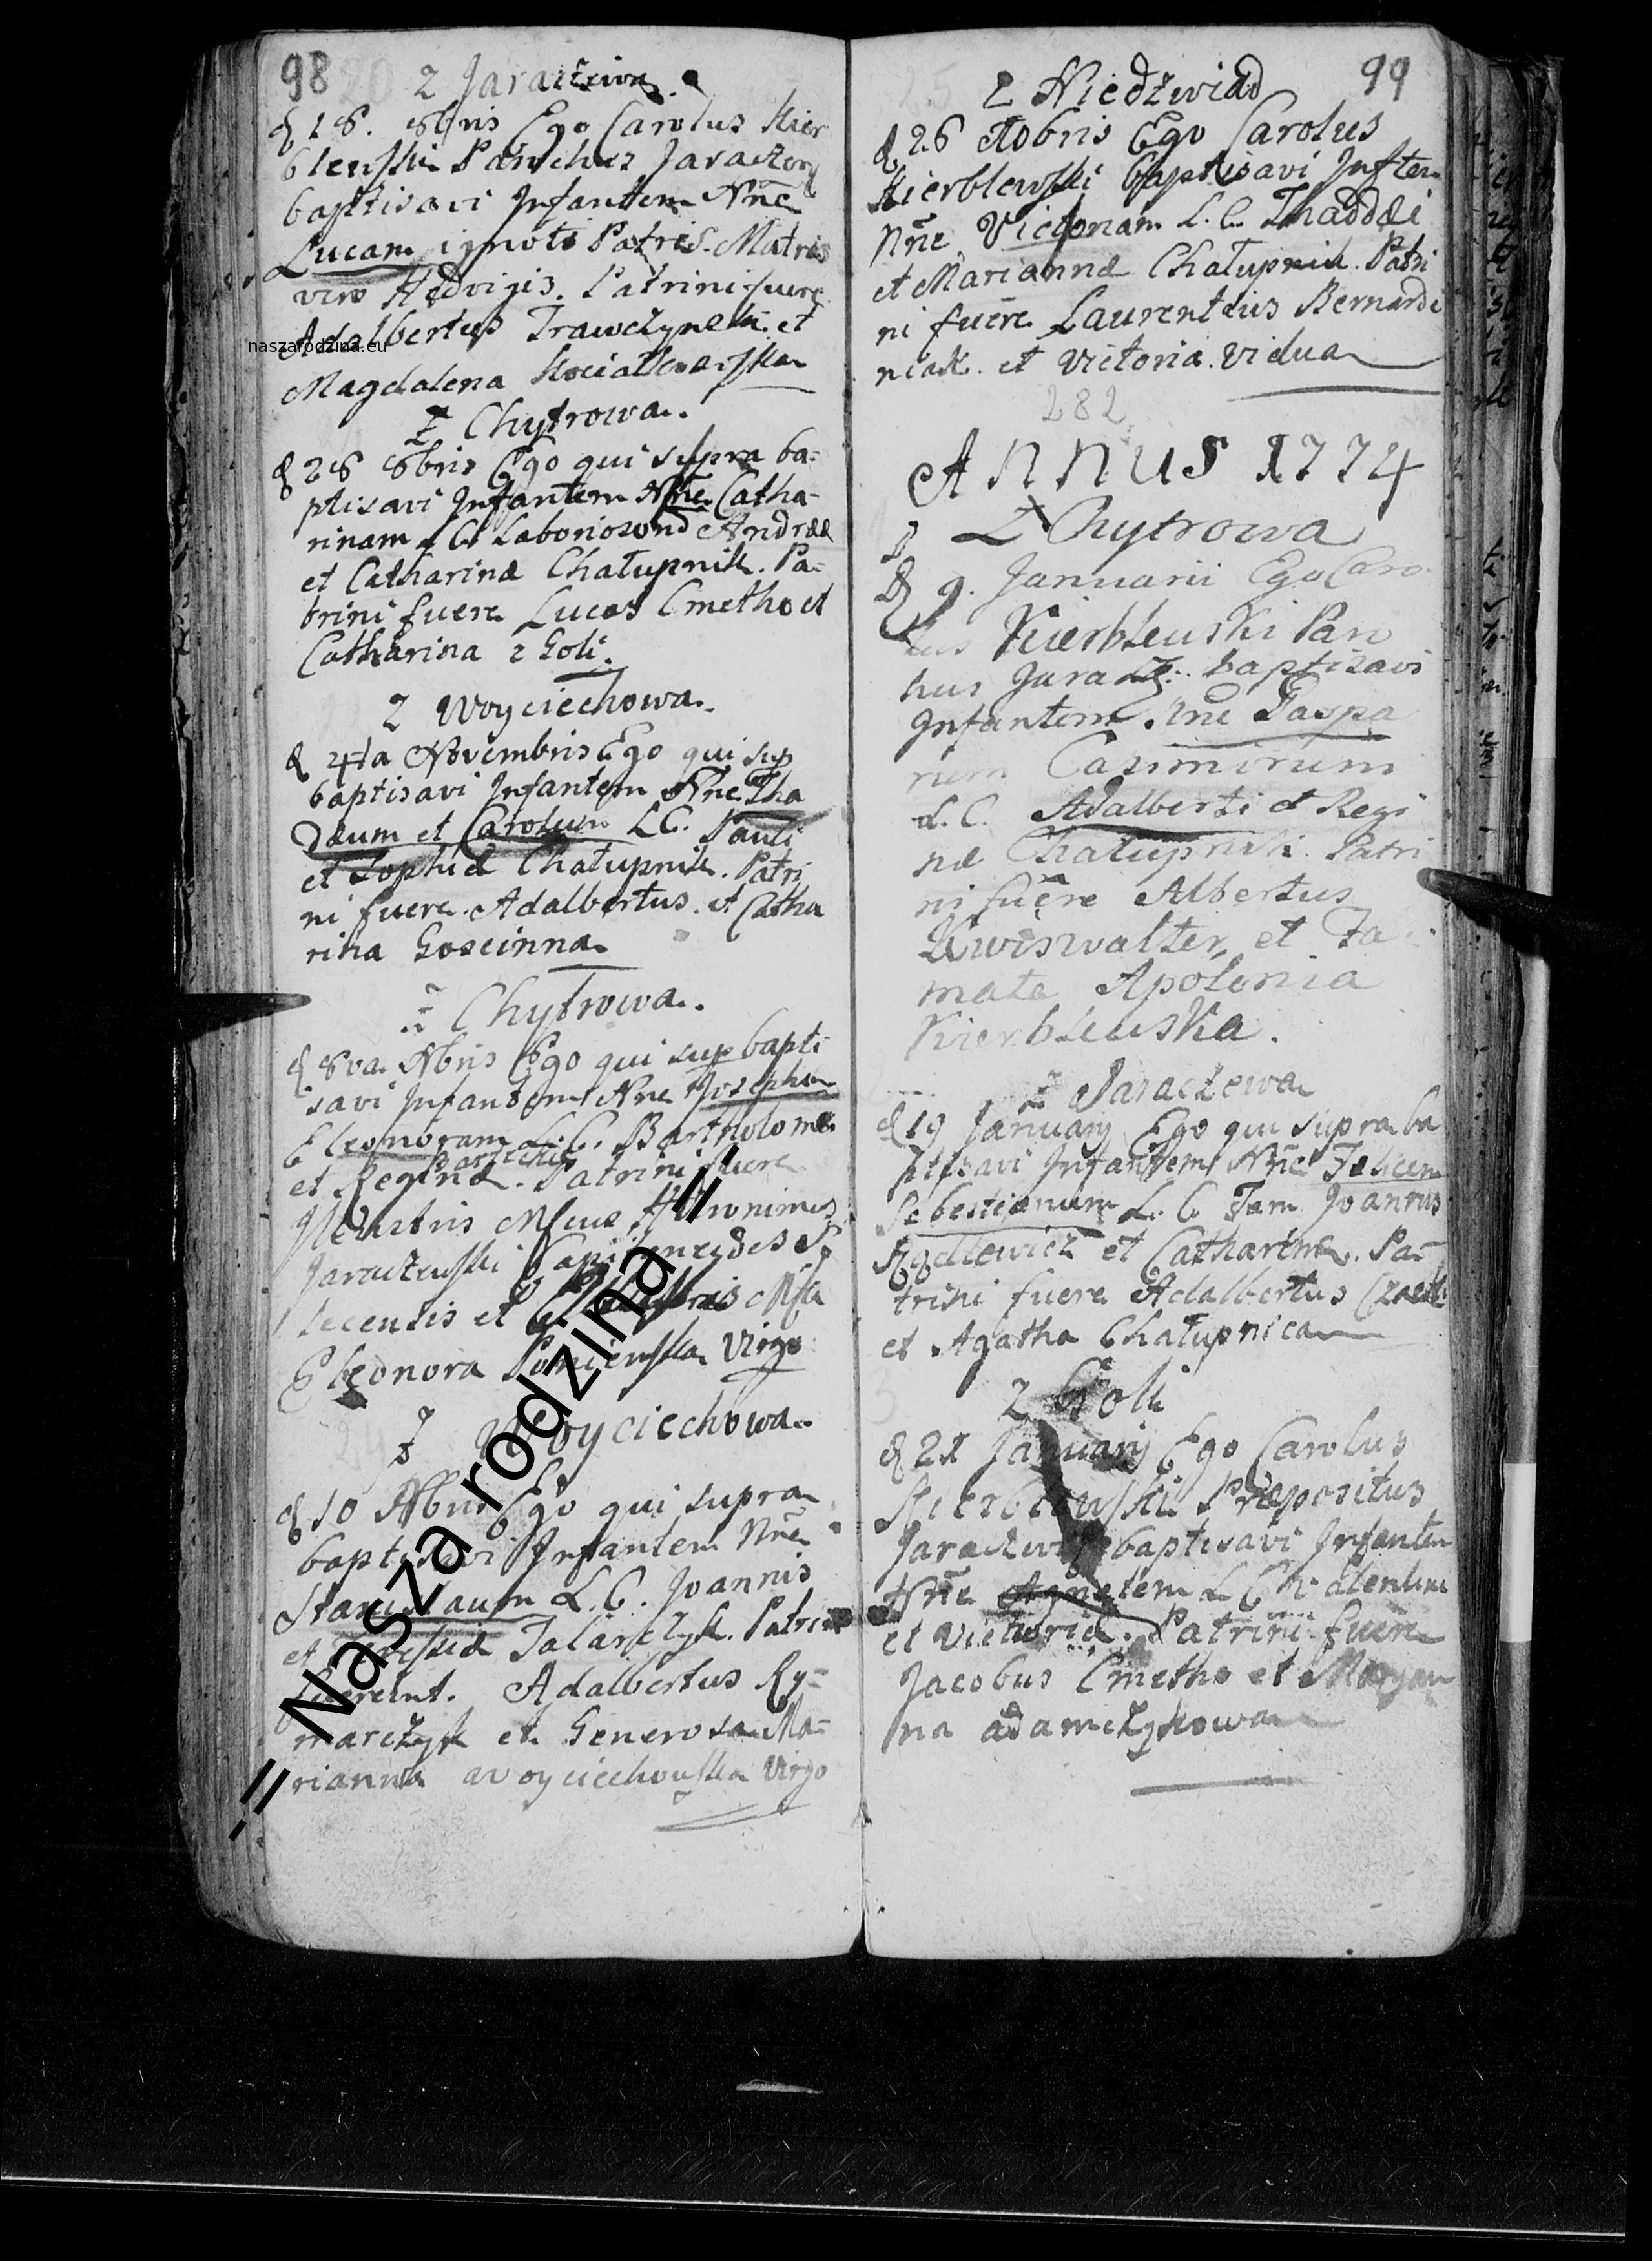 98
z Jaraczewa.
d 18. 8bris Ego Carolus Kier
blewski Parochus Jaraczew
baptisavi Infantem Nne
Lucam ignoti Patris. Matris
vero Hedvigis. Patrini fuere
Adalbertus Trawczynski et
Magdalena
Z Chytrowa.
d 28 8bris Ego qui supra ba=
ptisavi Infantem Nne Catha=
rinam L C Laboriosorum Andreæ
et Catharinæ Chałupnik. Pa=
trini fuere Lucas Cmetho et
Catharina z Goli.
z Woyciechowa.
d 4ta Novembris Ego qui sup
baptisavi Infantem Nne Tha
dæum et Carolum LC. Pauli
et Sophiæ Chałupnik. Patri
ni fuere. Adalbertus. et Catha
rina Goscinna
z Chytrowa.
d 8va Nbris Ego qui sup bapti
savi Infantem Nne Josepham
Eleonoram L.C. Bartholomei
et Reginæ. Patrini fuere
Illustris Hieronimus
Jaraczewski
et
Eleonora Virgo
Z Woyciechowa.
d 10 Nbris Ego qui supra
baptisavi Infantem Nne
Stanislaum L.C. Joannis
et Talarczyk. Patrini
fuerunt. Adalbertus Ry=
marczyk et Generosa Ma=
rianna Woyciechowska Virgo
99
z Niedzwiad
d 26 Ego Carolus
Kierblewski baptisavi Inftem
Nne Victoriam L.C. Thaddæi
et Mariannæ Chałupnik. Patri
ni fuere Laurentius Bernardi
niak. et Victoria. Vidua
282
Annus 1774
Z Chytrowa
D 9. Januarii Ego Caro
lus Kierblewski Paro
hus Jaracz. baptisavi
Infantem. Nne Gaspa
rum Casimirum
L.C. Adalberti et Regi
næ Chałupnik. Patri
ni fuere Albertus
et Fa
mata Apolonia
Kierblewska.
z Jaraczewa
d 19 January Ego qui supra ba
ptisavi Infantem Nne Felicem
Sebestianum L.C. Fam Joannis
et Catharinæ. Pa=
trini fuere Adalbertus
et Agatha Chałupnica
z Goli
d 21 January Ego Carolus
Kierblewski Præpositus
baptisavi Infantem
Nne Agnetem L C Valentini
et Victoriæ. Patrini fuere
Jacobus Cmetho et Maryan
na adamczykowa
naszarodzina.eu
-= Nasza rodzina =-